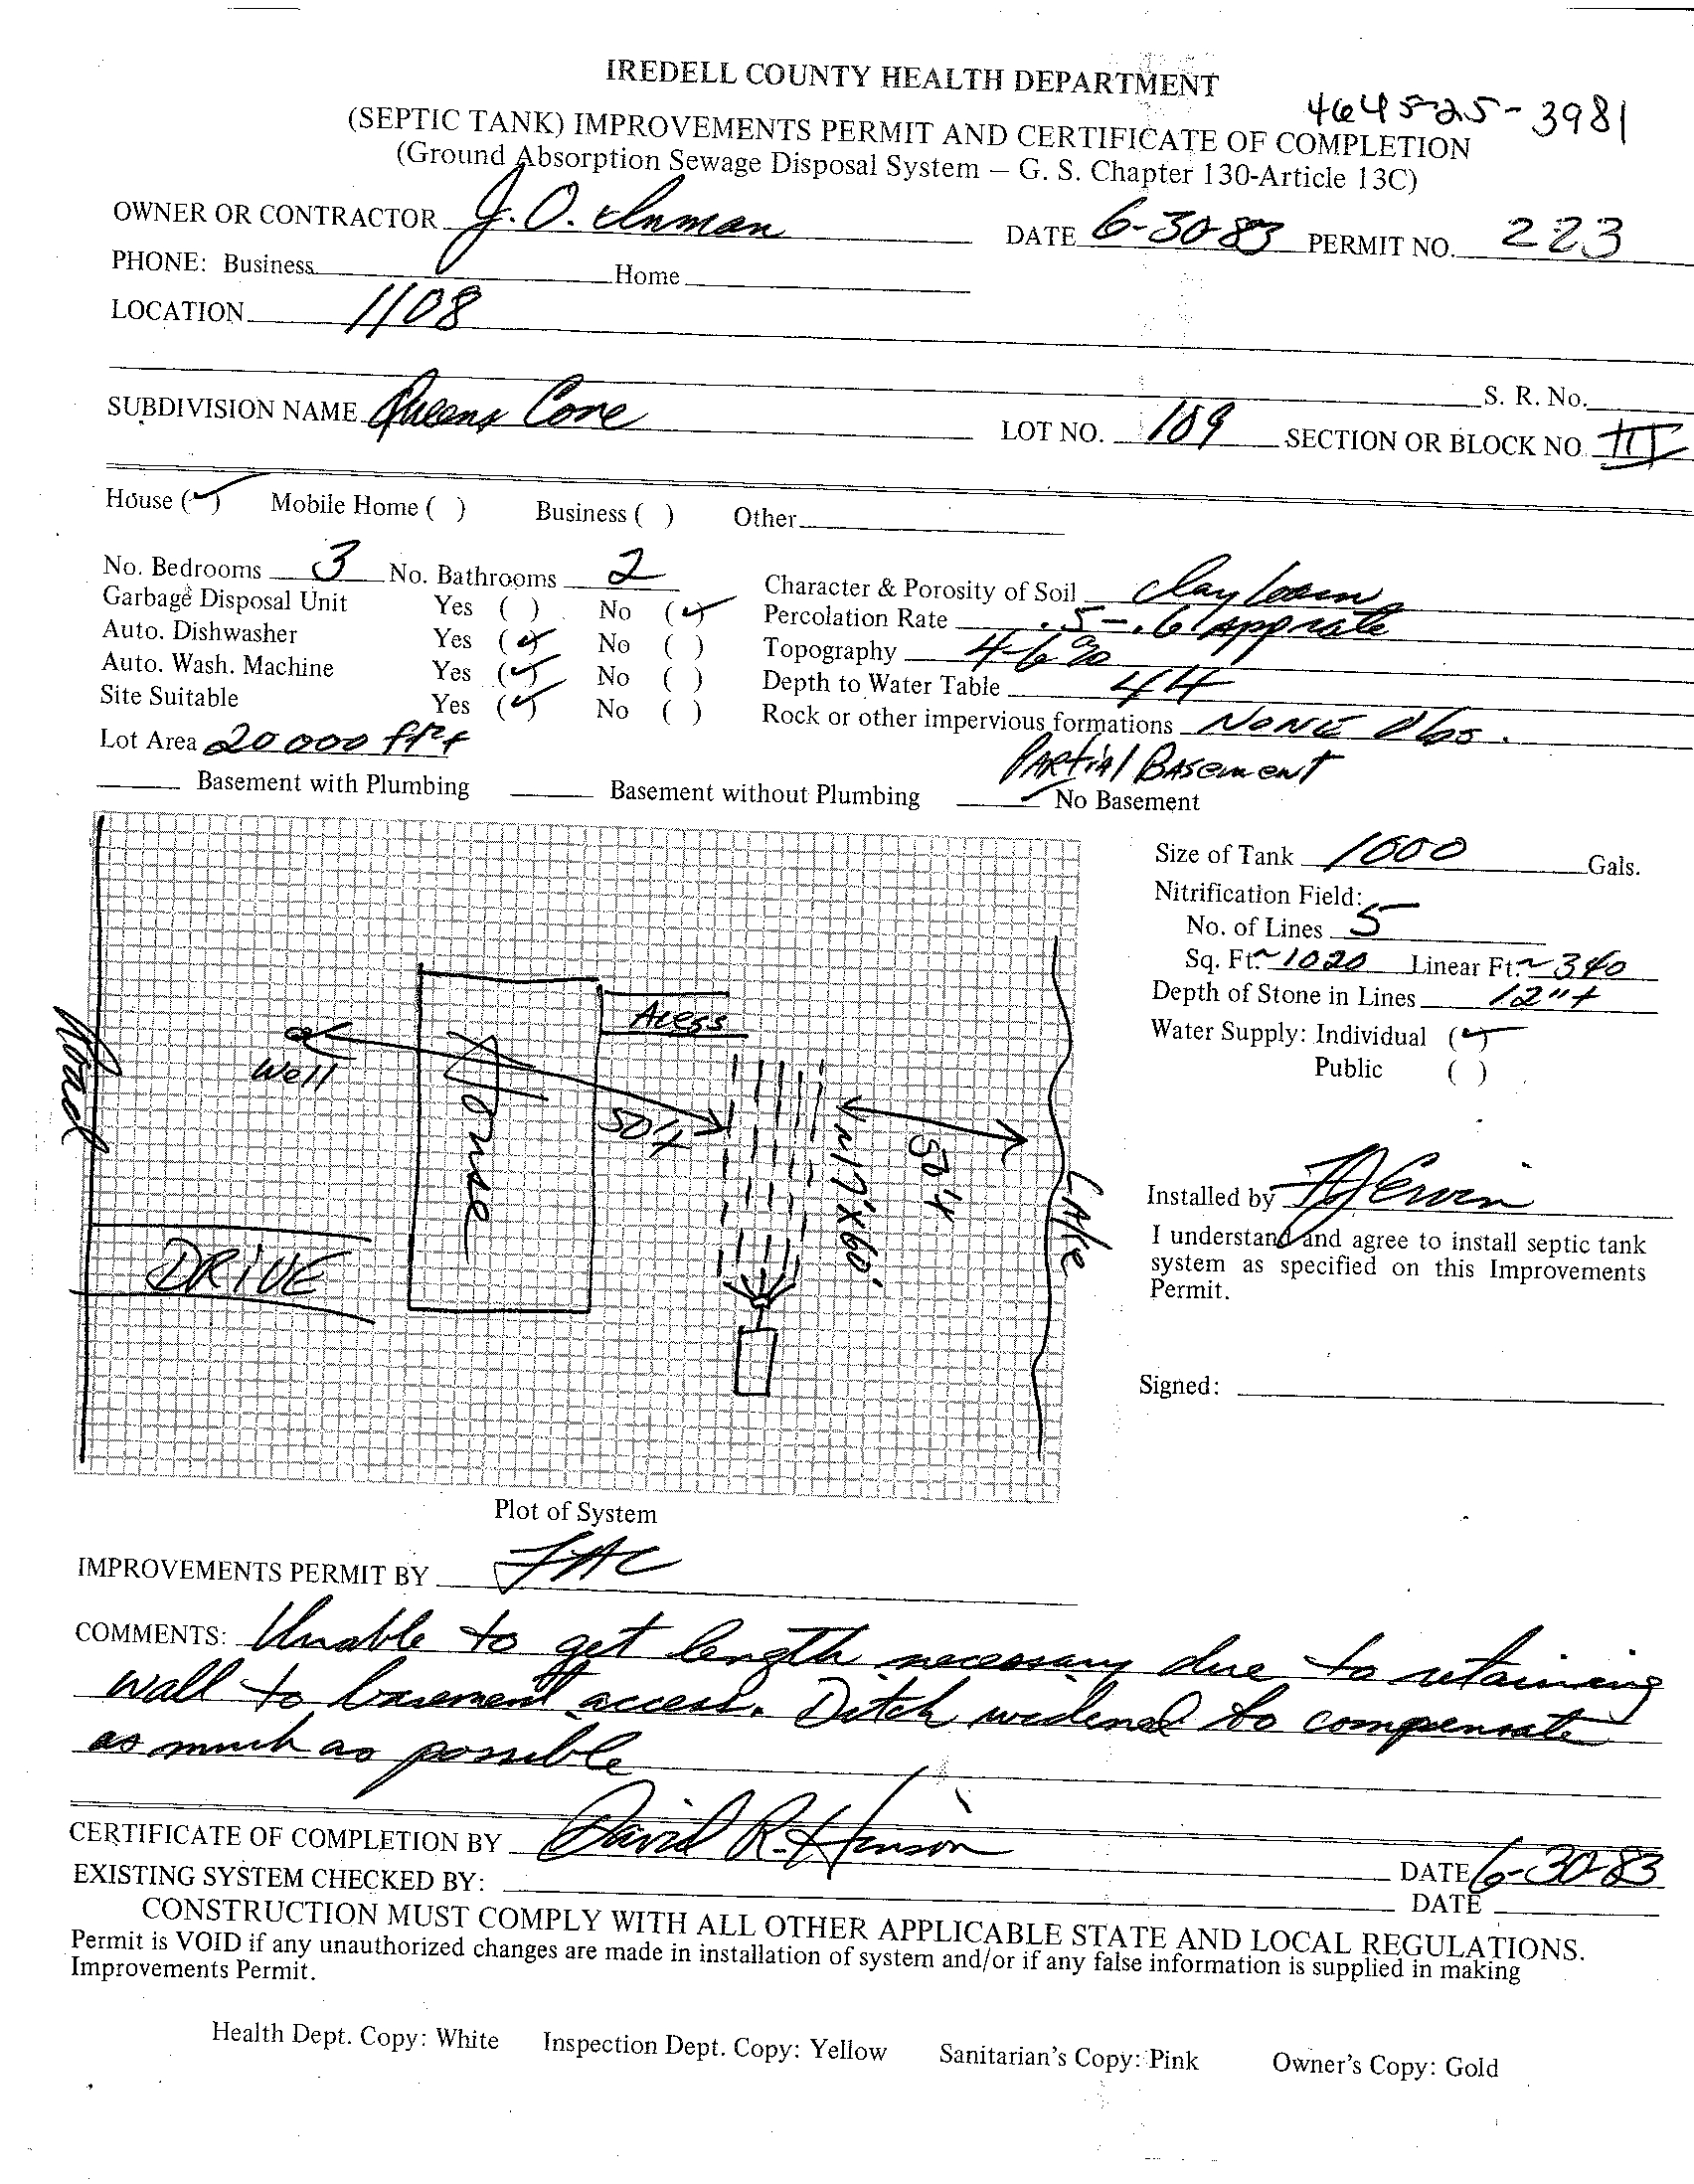 IREDELL COUNTY HEALTH DEPARTMENT
4644525-3981
(SEPTIC TANK) IMPROVEMENTS PERMIT AND CERTIFICATE OF COMPLETION
(Ground Absorption Sewage Disposal System — G. S. Chapter 130-Article 13C)
OWNER OR CONTRACTOR J. O. Inman DATE 6-30-83 PERMIT NO. 223
PHONE: Business Home
LOCATION 1108
S. R. No.
SUBDIVISION NAME Queens Cove LOT NO. 109 SECTION OR BLOCK NO. III
House (✓) Mobile Home ( ) Business ( ) Other
No. Bedrooms 3 No. Bathrooms 2 Character & Porosity of Soil Clay loam
Garbage Disposal Unit Yes ( ) No (✓) Percolation Rate .5-.6 app rate
Auto. Dishwasher Yes (✓) No ( ) Topography 4-6%
Auto. Wash. Machine Yes (✓) No ( ) Depth to Water Table 4 ft
Site Suitable Yes (✓) No ( ) Rock or other impervious formations NONE Obs.
Lot Area 20000 ft²+
Partial Basement
Basement with Plumbing Basement without Plumbing ✓ No Basement
Size of Tank 1000 Gals.
Nitrification Field:
No. of Lines 5
Sq. Ft. ~1020 Linear Ft. ~340
Depth of Stone in Lines 12"+
Water Supply: Individual (✓)
Public ( )
Road
Well
House
Acess
50'+
~17'x60'
50'+
Lake
DRIVE
Installed by
I understand and agree to install septic tank
system as specified on this Improvements
Permit.
Signed:
Plot of System
IMPROVEMENTS PERMIT BY
COMMENTS: Unable to get length necessary due to retaining
wall to basement access. Ditch widened to compensate
as much as possible
CERTIFICATE OF COMPLETION BY David R. Henson DATE 6-30-83
EXISTING SYSTEM CHECKED BY: DATE
CONSTRUCTION MUST COMPLY WITH ALL OTHER APPLICABLE STATE AND LOCAL REGULATIONS.
Permit is VOID if any unauthorized changes are made in installation of system and/or if any false information is supplied in making
Improvements Permit.
Health Dept. Copy: White Inspection Dept. Copy: Yellow Sanitarian's Copy: Pink Owner's Copy: Gold